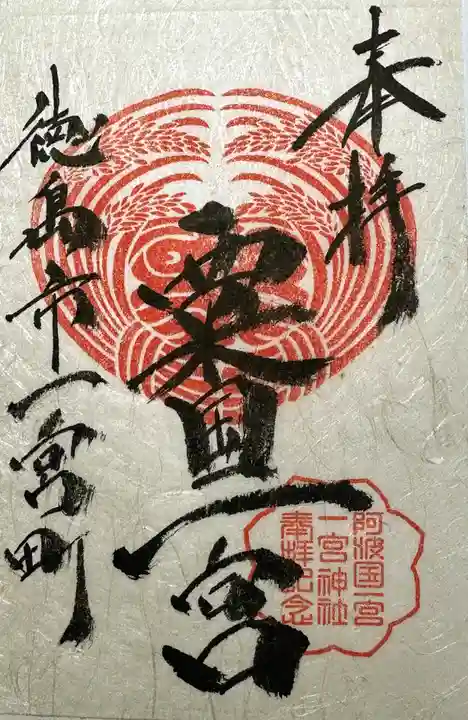 奉拝
粟国一宮
徳島市一宮町
阿波国一宮
一宮神社
奉拝記念